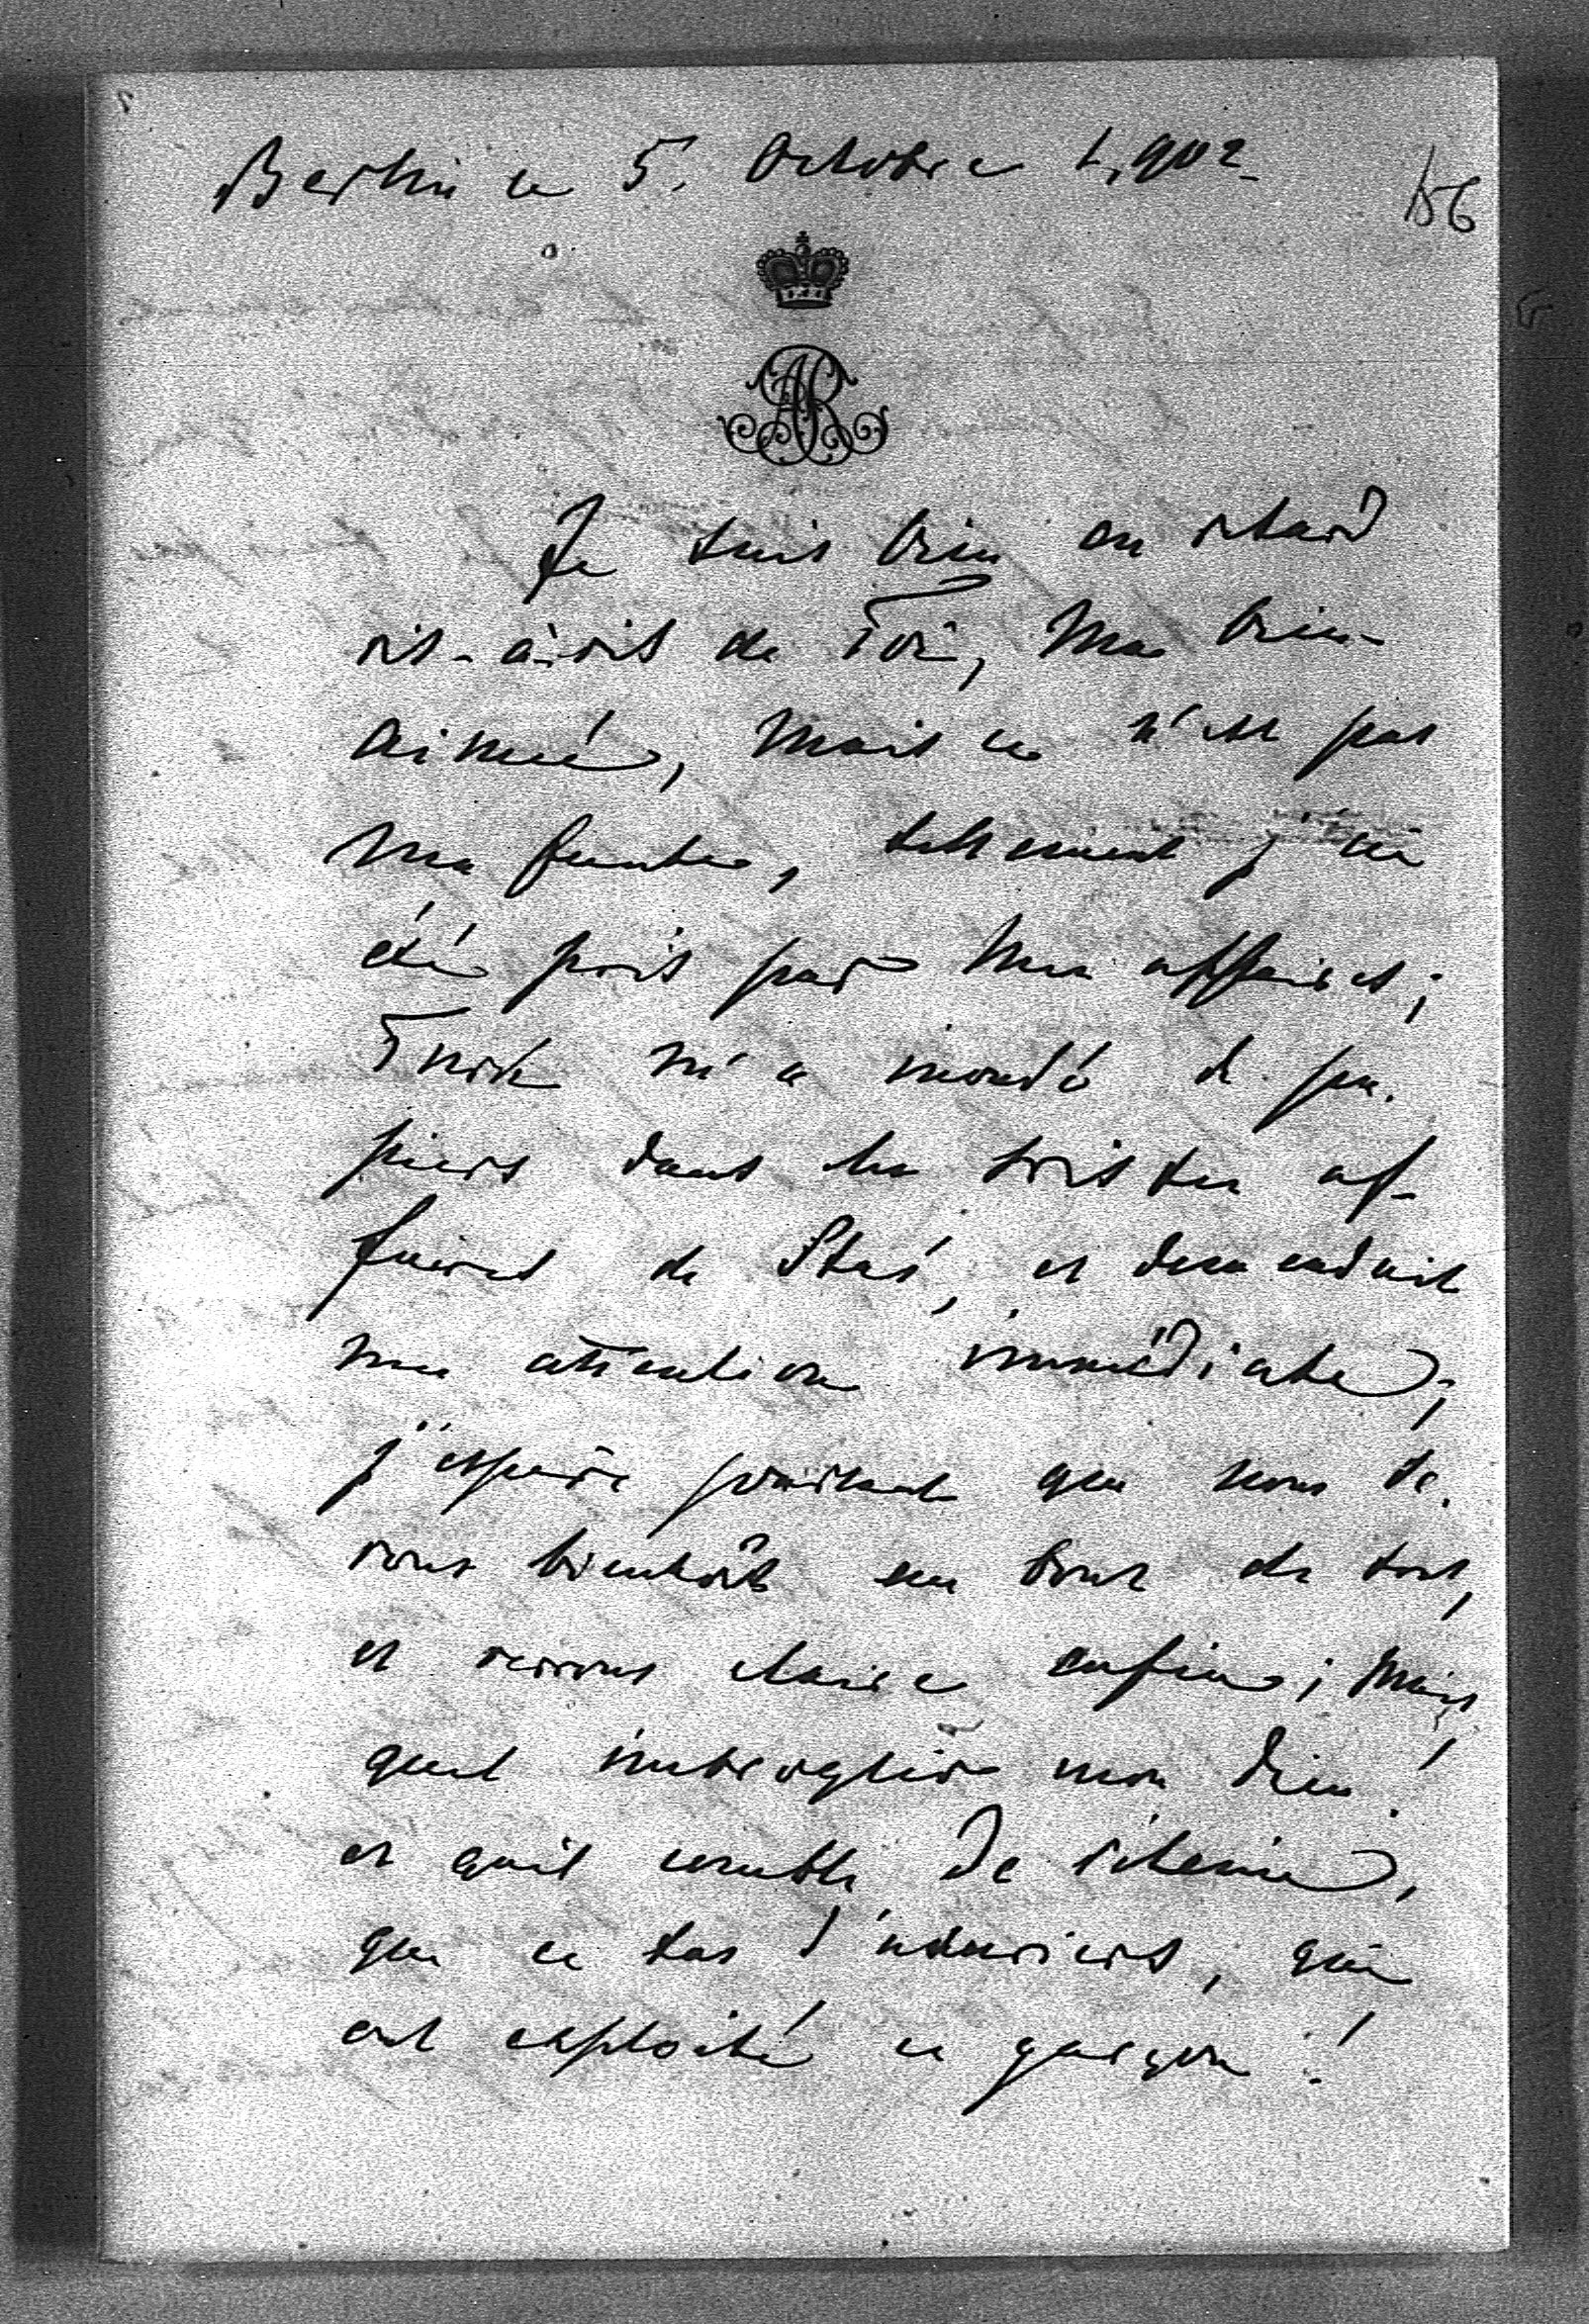 Berlin ce 5. Octobre 1,902
156
AR
Je suis bien en retard
vis-à-vis de Toi, Ma bien-
aimée, Mais ce n'est pas
Ma faute, tellement j'ai
été pris par Mes affaires;
m'a inondé de pa-
piers dans les tristes af-
faires de Stas, et demandait
mon attention immédiate;
j'espère pourtant que nous se-
rons bientôt au bout de tout,
et verrons claire enfin; Mais
quel imbroglio mon Dieu!
et quil comble de
que ce tas d'usuriers, qui
ont exploité ce garçon!